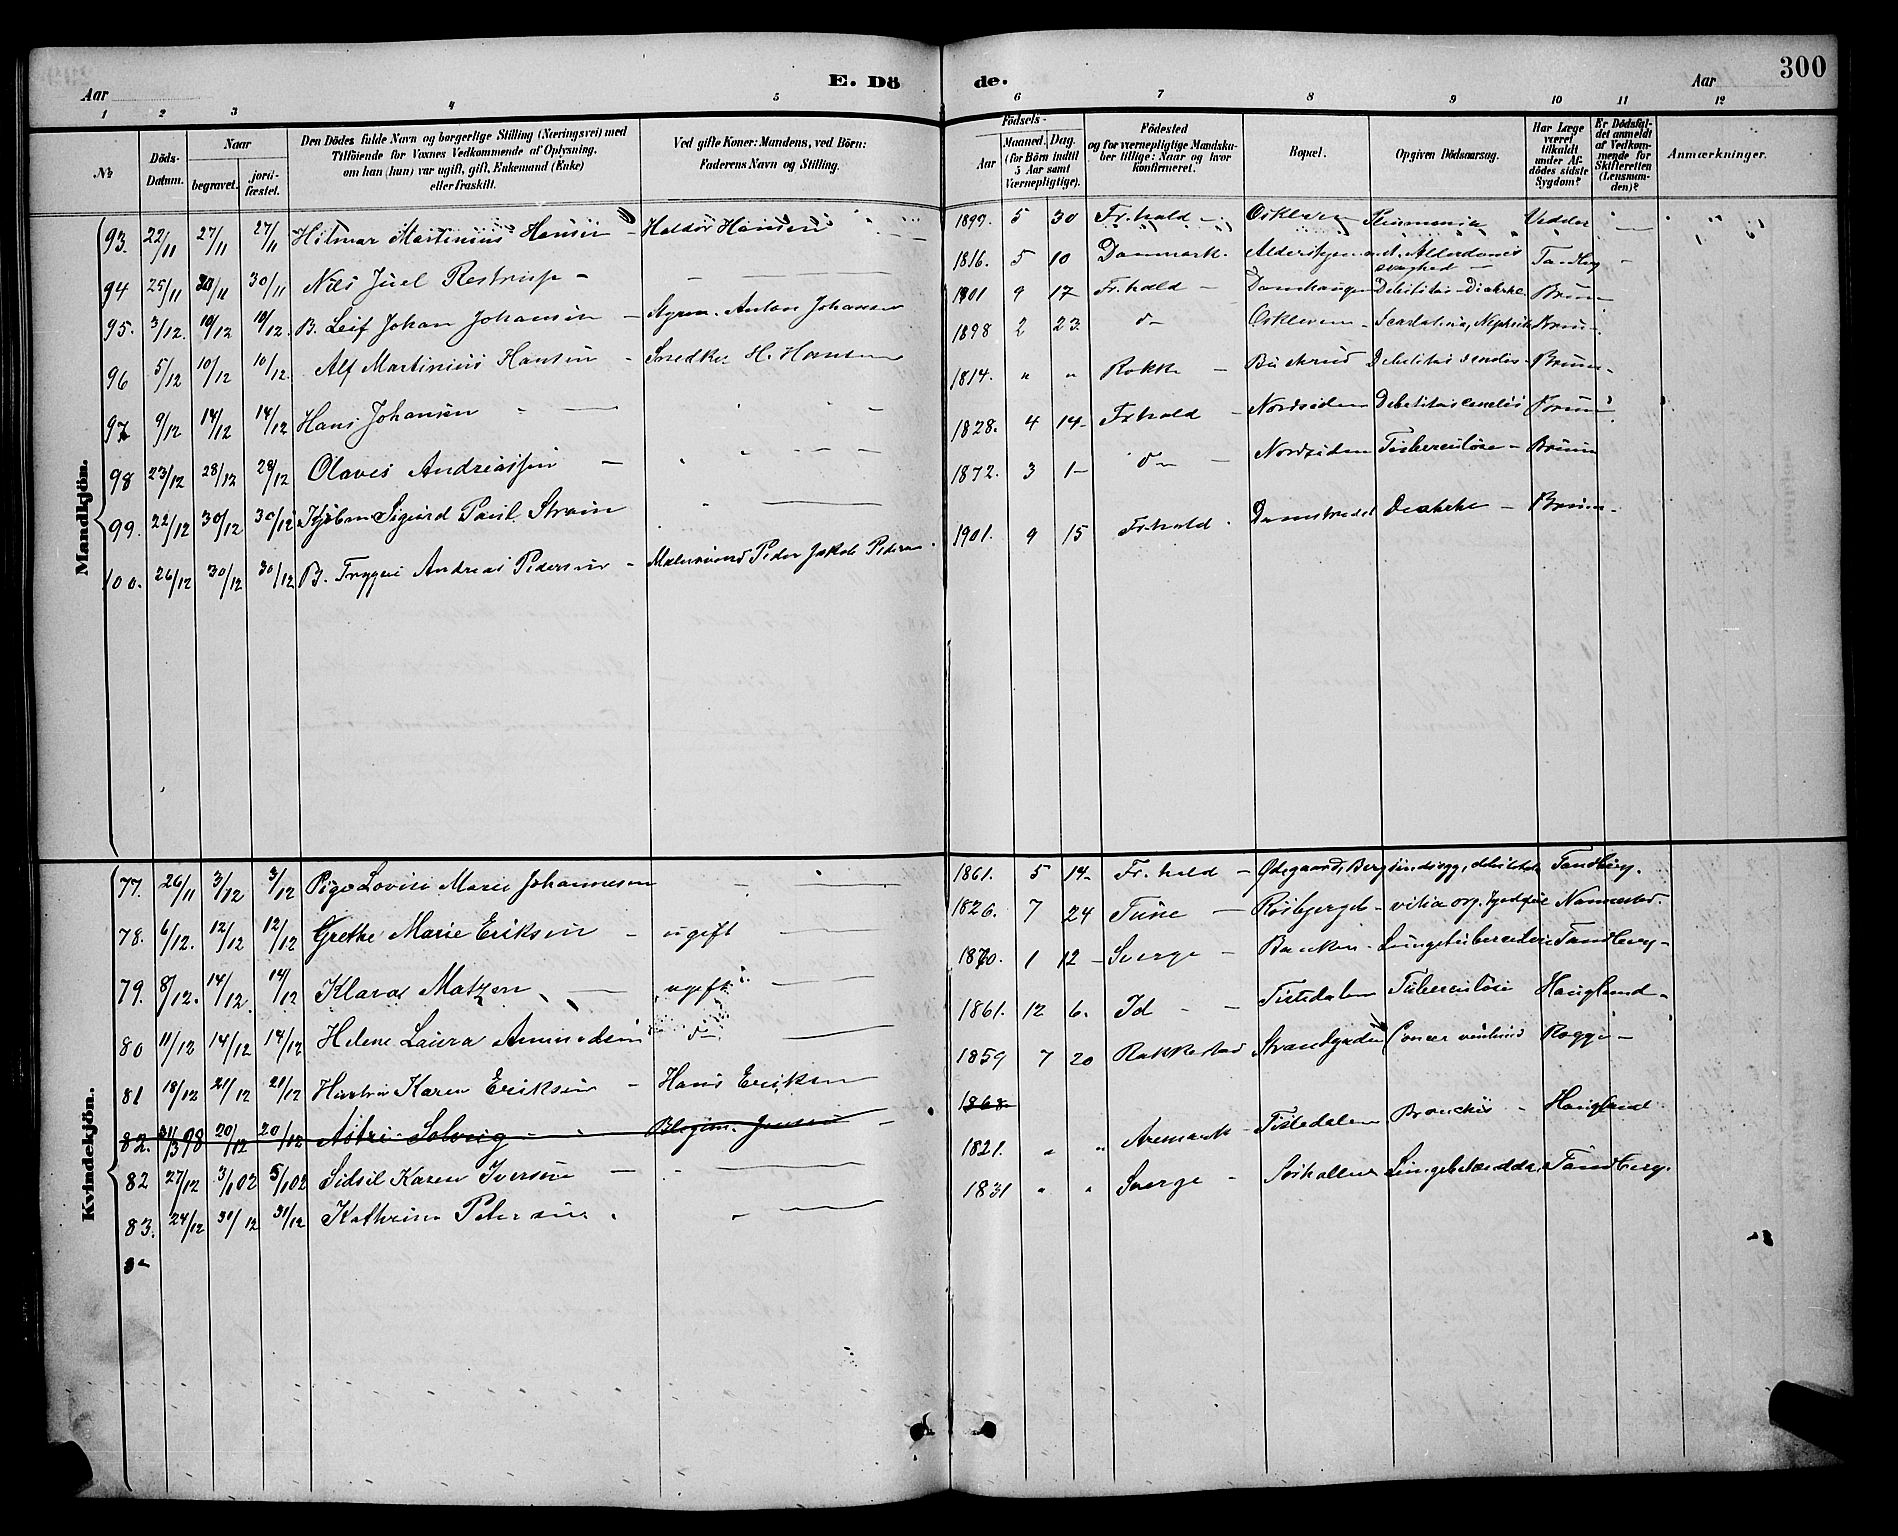 Aar
E. Dö
de.
Aar
300
1 2 3 4 5 6 7 8 9 10 11 12
No
Döds-Datum.
Naar
begravet.
jord-fæstet.
Den Dödes fulde Navn og borgerlige Stilling (Næringsvei) med
Tilföiende for Voxnes Vedkommende af Oplysning,
om han (hun) var ugift, gift, Enkemand (Enke)
eller fraskilt.
Ved gifte Koner: Mandens, ved Börn:
Faderens Navn og Stilling.
Födsels-
Aar
Maaned. Dag.
(for Börn indtil
5 Aar samt
Værnepligtige).
Födested
og for værnepligtige Mandska-
ber tillige: Naar og hvor
konfirmeret.
Bopæl.
Opgiven Dödsaarsag.
Har Læge
været
tilkaldt
under Af-
dödes sidste
Sygdom?
Er Dödsfal-
det anmeldt
af Vedkom-
mende for
Skifteretten
(Lensman-
den)?
Anmærkninger.
Mandkjön.
93. 22/11 27/11 27/11 Hilmar Martinius Hansen - Haldor Hansen 1899. 5 30 Fr.hald - Oskleven
94 25/11 30/11 30/11 Nils Juel Restrup - 1816. 5 10 Danmark. Tandberg -
95. 3/12. 10/12 10/12. B. Leif Johan Johansen - Styrm. Anton Johansen 1901 9 17 Fr.hald - Damhaugen Debilitas - Diarhe Bruun -
96 5/12 10/12 10/12. Alf Martinius Hansen - Snedker H. Hansen 1898 2 23. do Oskleven - Scarlatina, Nephrit Bruun.
97 9/12 14/12 14/12 Hans Johansen - 1814. " " Rokke - Debilitas senilis - Bruun -
98 23/12 28/12 28/12 Olaves Andreassen - 1828. 4 14 - Frhald - Nordsiden Debilitas senilis Bruun
99. 22/12 30/12 30/12 Sigurd Paul Strøm 1872. 3 1 - do - Nordsiden Tuberculose - Bruun
100. 26/12 30/12 30/12 B. Trygve Andreas Pedersen - Malersvend Peder Jakob Pedersen. 1901. 9 15 Fr.hald. Damstrædet Diarhe - Bruun -
Kvindekjön.
77. 26/11 3/12 3/12 Pige Lovise Marie Johannesen 1861. 5 14 - Fr.hald - Ødegaard, Berg Tandberg.
78. 6/12. 12/12 12/12 Grethe Marie Eriksen - ugift 1826. 7 24 Tune - Røsbjerget - vitia org. Nannestad.
79. 8/12. 14/12. 14/12 Klara Matzen - ugift 1870. 1 12 - Sverge - Banken - Lungetuberculose Tandberg -
80 11/12 14/12 14/12 Helene Laura Amundsen do 1861. 12 6. Id - Tistedalen Tuberculose Hauglund -
81 18/12 21/12 21/12 Hustru Karen Eriksen - Hans Eriksen 1859 7 20 Rakkestad Strandgaden Cancer ventriculi Rogge -
82. 31/3 98 20/12 20/12 Astri Solveig - Jensen - 1868
82 27/12 3/1 02 5/1 02 Sidsil Karen Iversen - 1821. " " Aremark - Tistedalen Bronchit - Hauglund
83. 24/12 31/12 31/12 Kathrine Petersen. 1831 " " Sverge - Sørhallen Lungebetændelse, Tandberg.